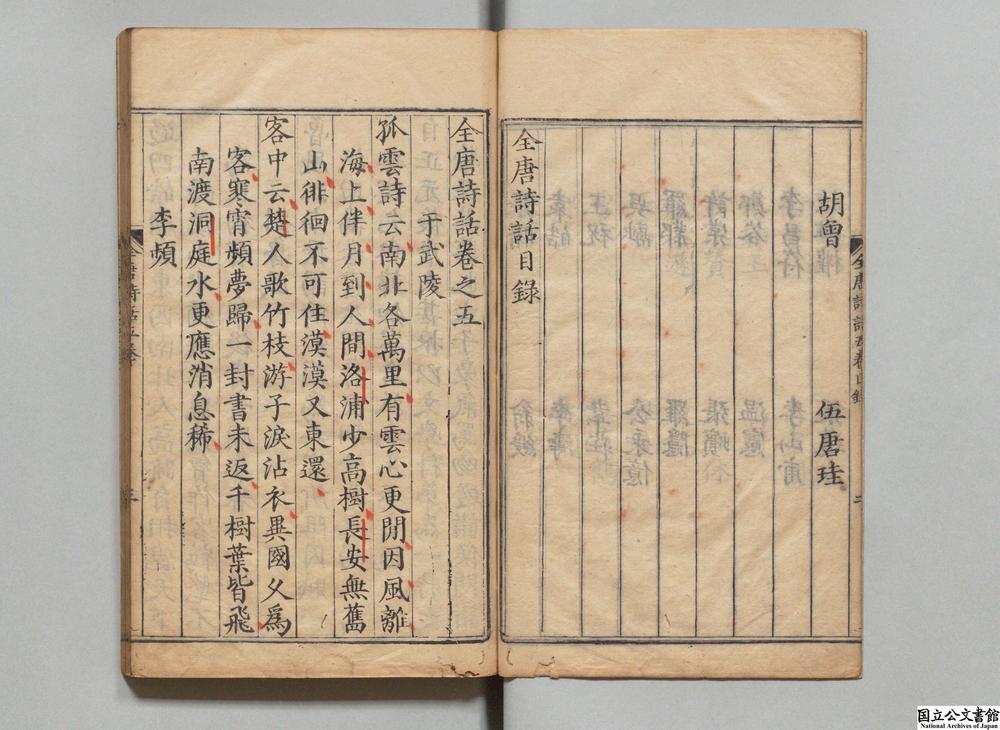 胡曾 伍唐珪
全唐詩話目錄
全唐詩話五卷目錄
二
全唐詩話卷之五
于武陵
孤雲詩云南北各萬里有雲心更閒因風離
海上伴月到人間洛浦少高樹長安無舊
山徘徊不可住漠漠又東還
客中云楚人歌竹枝游子淚沾衣異國久爲
客寒宵頻夢歸一封書未返千樹葉皆飛
南渡洞庭水更應消息稀
李頻
全唐詩話五卷
国立公文書館
National Archives of Japan